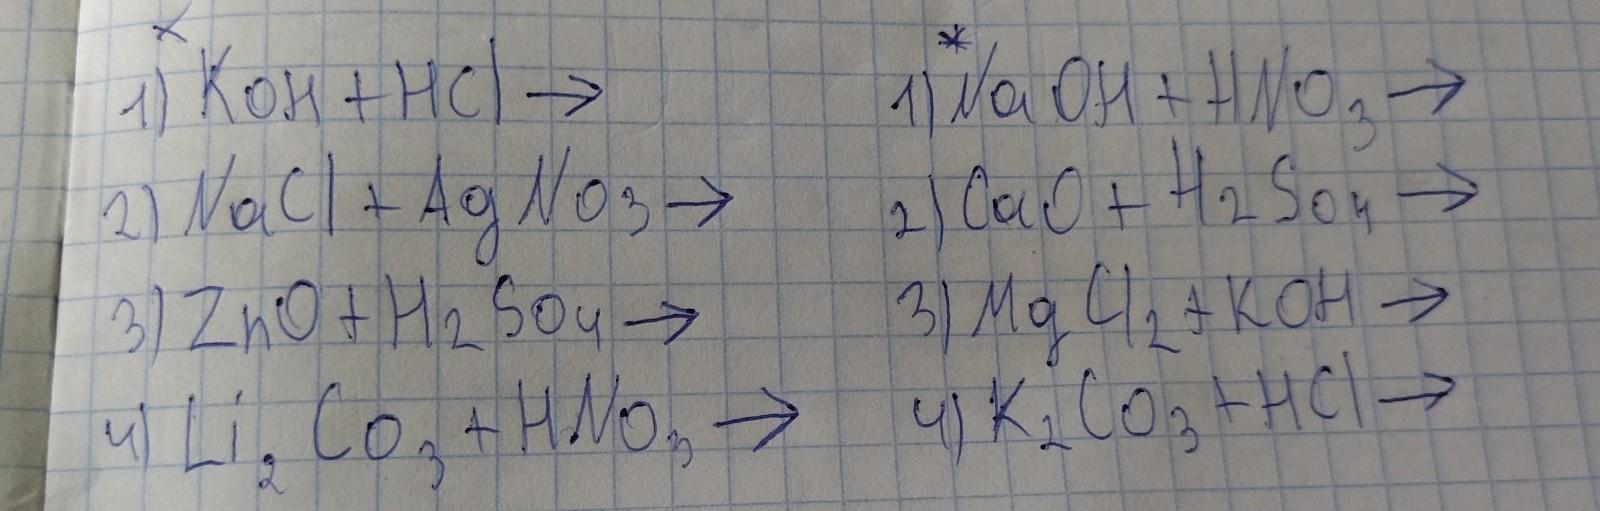 × *
1) KOH + HCl →
2) NaCl + AgNO3 →
3) ZnO + H2SO4 →
4) Li2CO3 + HNO3 →
1) NaOH + HNO3 →
2) CaO + H2SO4 →
3) MgCl2 + KOH →
4) K2CO3 + HCl →